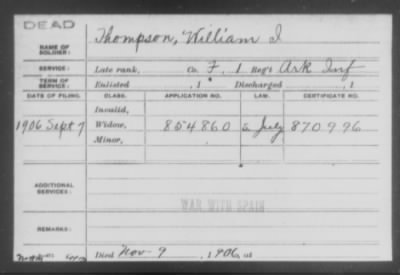 DEAD
NAME OF SOLDIER: Thompson, William I
SERVICE: Late rank, Co. F, 1 Reg't Ark Inf
TERM OF SERVICE: Enlisted , 1 Discharged , 1
DATE OF FILING. CLASS. APPLICATION NO. LAW. CERTIFICATE NO.
Invalid,
1906 Sept 7 Widow, 854860 July 870996
Minor,
ADDITIONAL SERVICES:
WAR WITH SPAIN
REMARKS:
Died Nov 9, 1906, at